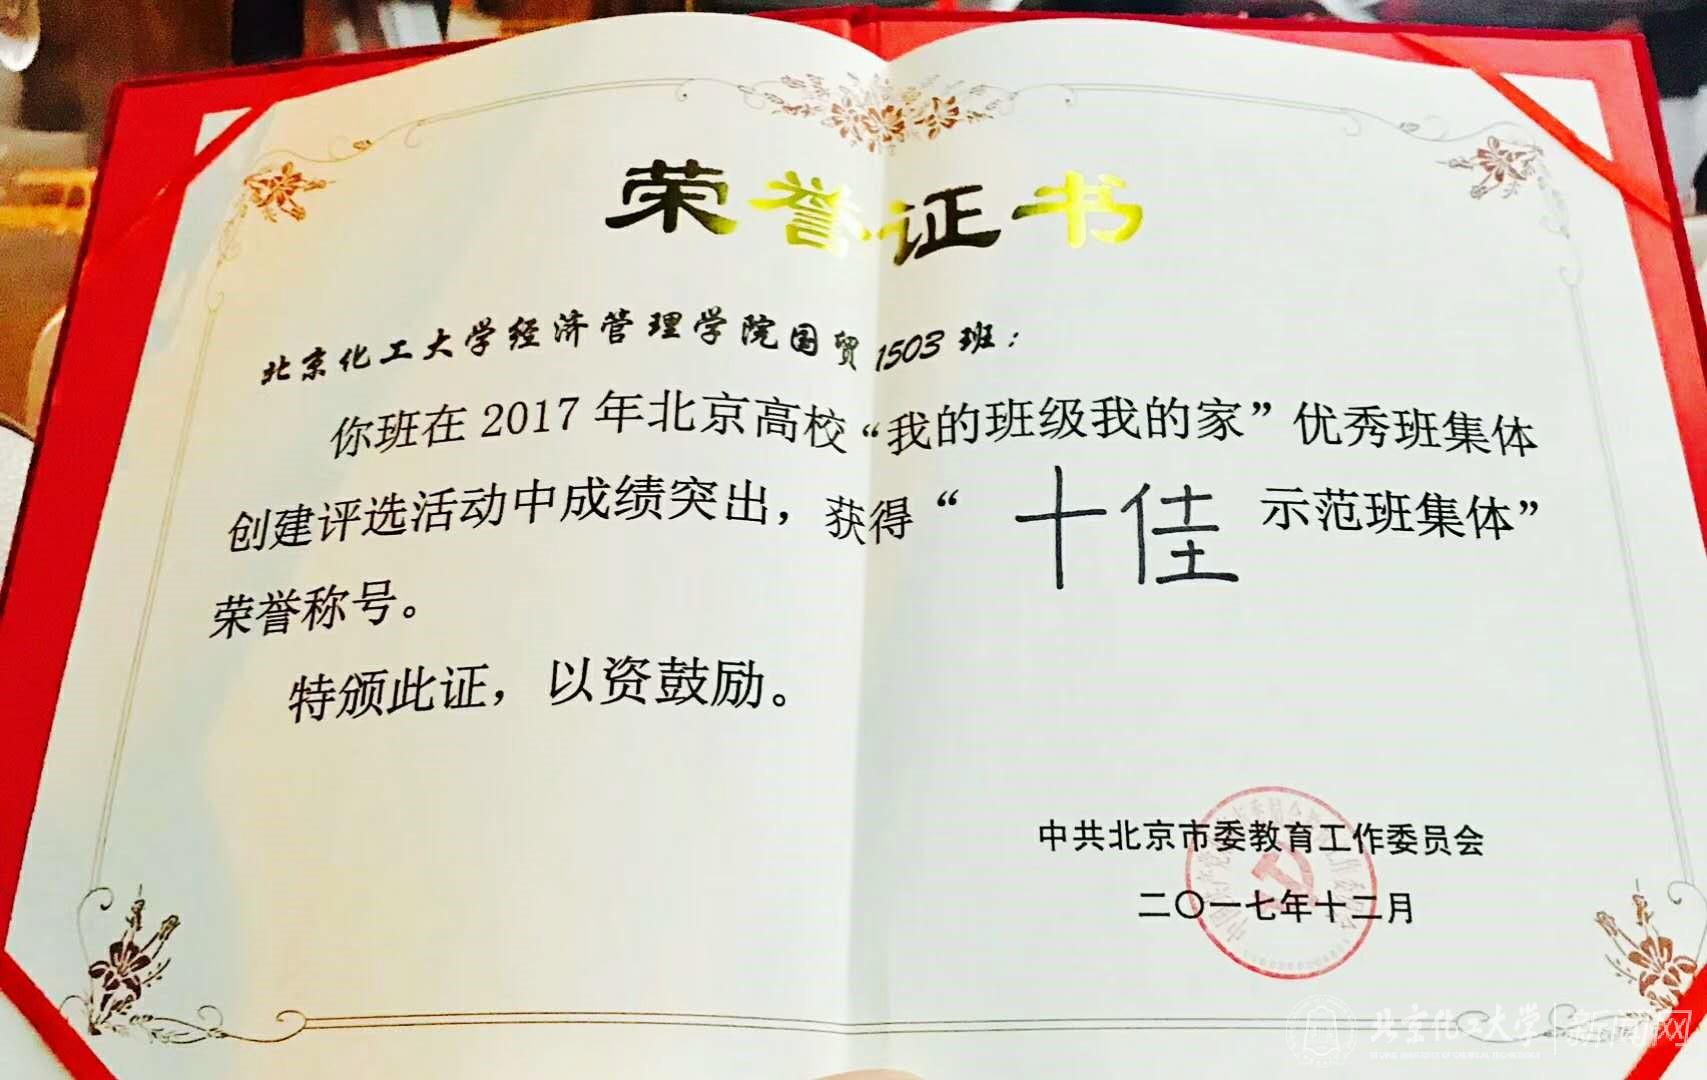 荣誉证书
北京化工大学经济管理学院国贸1503班：
你班在2017年北京高校“我的班级我的家”优秀班集体
创建评选活动中成绩突出，获得“十佳示范班集体”
荣誉称号。
特颁此证，以资鼓励。
中共北京市委教育工作委员会
二〇一七年十二月
北京化工大学 新闻网